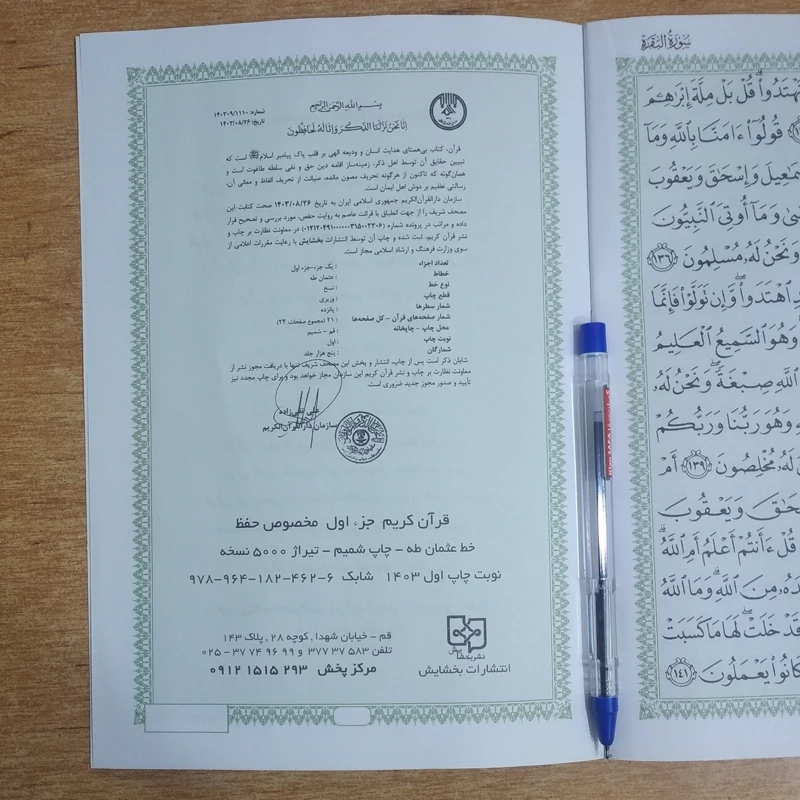 بسم الله الرحمن الرحیم
شماره: ۱۴۰۳۰۹/۱۱۱۰
تاریخ: ۱۴۰۳/۰۸/۲۶
انا نحن نزلنا الذکر و انا له لحافظون
قرآن، کتاب بی‌همتای هدایت انسان و ودیعه الهی بر قلب پاک پیامبر اسلام ﷺ است که
تبیین حقایق آن توسط اهل ذکر، زمینه‌ساز اقامه دین حق و نفی سلطه طاغوت است و
همان‌گونه که تاکنون از هرگونه تحریف مصون مانده، صیانت از تحریف الفاظ و معانی آن،
رسالتی عظیم بر دوش اهل ایمان است.
سازمان دارالقرآن‌الکریم جمهوری اسلامی ایران به تاریخ ۱۴۰۳/۰۸/۲۶ صحت کتابت این
مصحف شریف را از جهت انطباق با قرائت عاصم به روایت حفص، مورد بررسی و تصحیح قرار
داده و مراتب در پرونده شماره در معاونت نظارت بر چاپ و
نشر قرآن کریم، ثبت شده و چاپ آن توسط انتشارات بخشایش با رعایت مقررات اعلامی از
سوی وزارت فرهنگ و ارشاد اسلامی مجاز است.
تعداد اجزاء : یک جزء-جزء اول
خطاط : عثمان طه
نوع خط : نسخ
قطع چاپ : وزیری
شمار سطرها : پانزده
شمار صفحه‌های قرآن - کل صفحه‌ها : ۲۱ (مجموع صفحات: ۲۴)
محل چاپ - چاپخانه : قم - شمیم
نوبت چاپ : اول
شمارگان : پنج هزار جلد
شایان ذکر است پس از چاپ، انتشار و پخش این مصحف شریف تنها با دریافت مجوز نشر از
معاونت نظارت بر چاپ و نشر قرآن کریم این سازمان مجاز خواهد بود و برای چاپ مجدد نیز
تأیید و صدور مجوز جدید ضروری است.
علی تقی‌زاده
سازمان دارالقرآن‌الکریم
قرآن کریم جزء اول مخصوص حفظ
خط عثمان طه - چاپ شمیم - تیراژ ۵۰۰۰ نسخه
نوبت چاپ اول ۱۴۰۳ شابک ۶-۴۶۲-۱۸۲-۹۶۴-۹۷۸
قم - خیابان شهدا، کوچه ۲۸، پلاک ۱۴۳
تلفن ۵۸۳ ۳۷ ۳۷۷ و ۹۹ ۹۶ ۷۴ ۳۷ - ۰۲۵
مرکز پخش ۲۹۳ ۱۵۱۵ ۰۹۱۲
نشر بخشایش
انتشارات بخشایش
سورة البقرة
تَهْتَدُوا۟ ۗ قُلْ بَلْ مِلَّةَ إِبْرَٰهِـۧمَ
قُولُوٓا۟ ءَامَنَّا بِٱللَّهِ وَمَآ
وَإِسْحَٰقَ وَيَعْقُوبَ
وَمَآ أُوتِىَ ٱلنَّبِيُّونَ
وَنَحْنُ لَهُۥ مُسْلِمُونَ ١٣٦
ٱهْتَدَوا۟ ۖ وَّإِن تَوَلَّوْا۟ فَإِنَّمَا
وَهُوَ ٱلسَّمِيعُ ٱلْعَلِيمُ
ٱللَّهِ صِبْغَةً ۖ وَنَحْنُ لَهُۥ
وَهُوَ رَبُّنَا وَرَبُّكُمْ
لَهُۥ مُخْلِصُونَ ١٣٩ أَمْ
وَيَعْقُوبَ
قُلْ ءَأَنتُمْ أَعْلَمُ أَمِ ٱللَّهُ ۗ
مِنَ ٱللَّهِ ۗ وَمَا ٱللَّهُ
قَدْ خَلَتْ ۖ لَهَا مَا كَسَبَتْ
كَانُوا۟ يَعْمَلُونَ ١٤١